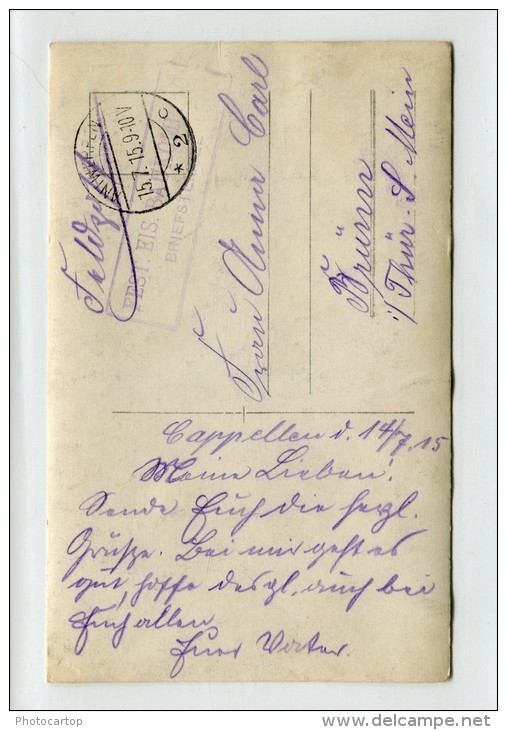 Feldpost
ANTWERPEN
15.7.15.9-10V
* 2 c
FEST. EIS. BA
BRIEFST
Frau Anna Carl
Brünn
i/Thür. S. Mein
Cappellen d. 14/7.15
Meine Lieben!
Sende Euch die herzl.
Grüsze. Bei mir geht es
gut, hoffe desgl. auch bei
Euch allen
Euer Vater.
Photocartop
delcampe.net